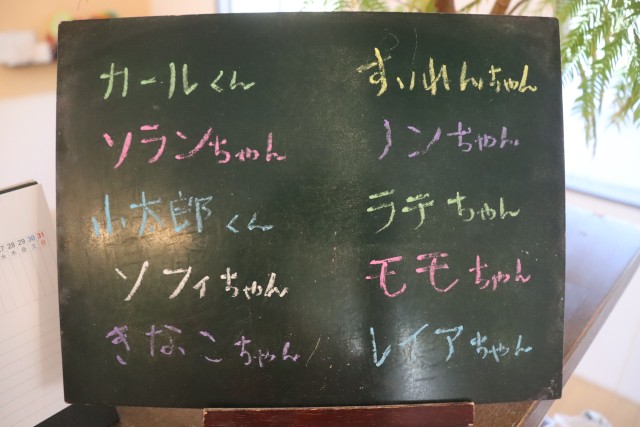 カールくん
ソランちゃん
小太郎くん
ソフィちゃん
きなこちゃん
すいれんちゃん
ノンちゃん
ラテちゃん
モモちゃん
レイアちゃん
27 28 29 30 31